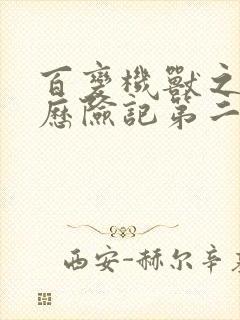 百变機獸之
歷險記第二
西安-赫尔辛